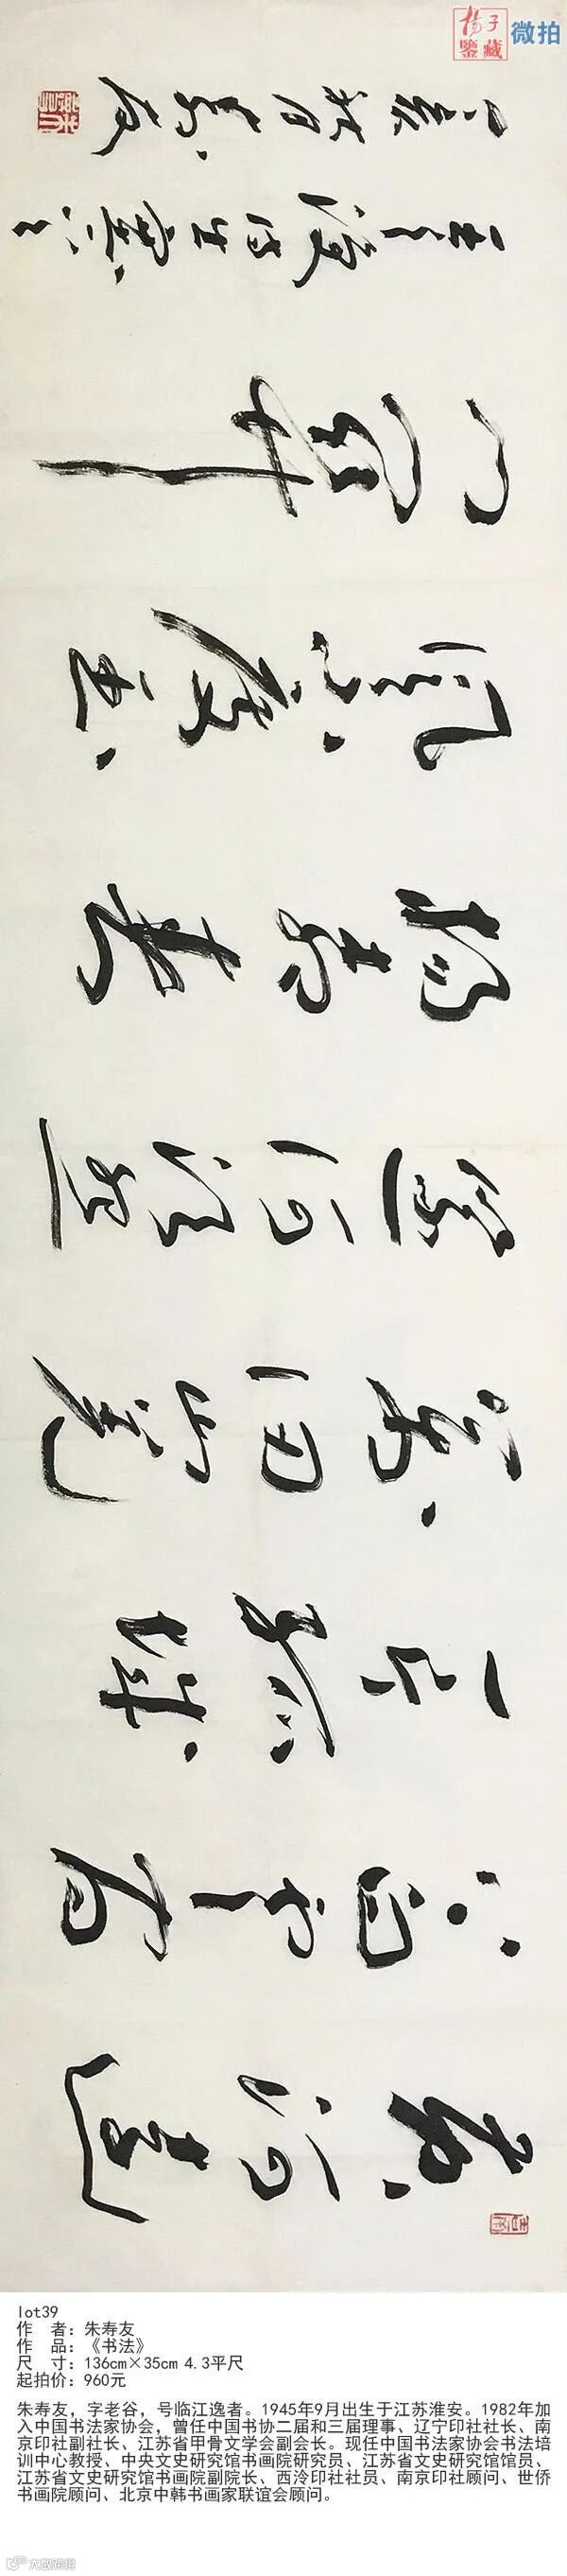 揚子
鑒藏
微拍
黄河遠
上白云间
一片孤城
萬仞山羌
笛何须怨
楊柳春
風不度玉
门関
寿友
lot39
作　者：朱寿友
作　品：《书法》
尺　寸：136cm×35cm 4.3平尺
起拍价：960元
朱寿友，字老谷，号临江逸者。1945年9月出生于江苏淮安。1982年加
入中国书法家协会，曾任中国书协二届和三届理事、辽宁印社社长、南
京印社副社长、江苏省甲骨文学会副会长。现任中国书法家协会书法培
训中心教授、中央文史研究馆书画院研究员、江苏省文史研究馆馆员、
江苏省文史研究馆书画院副院长、西泠印社社员、南京印社顾问、世侨
书画院顾问、北京中韩书画家联谊会顾问。